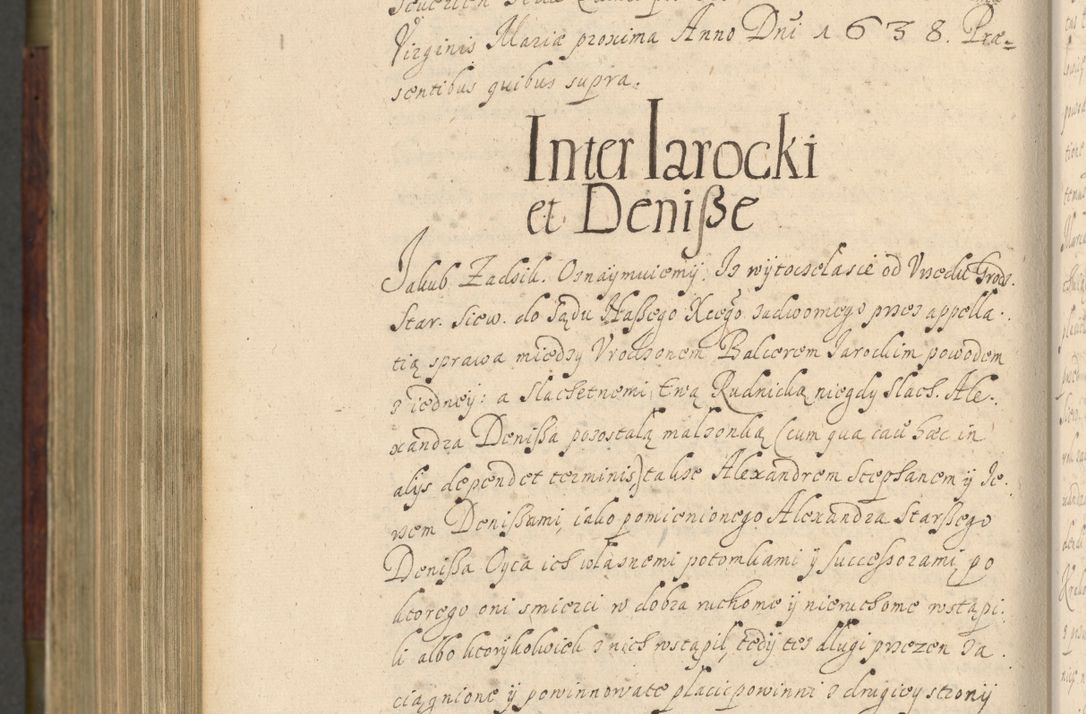 Virginis Mariæ proxima Anno Dñi 1638. Præ=
sentibus quibus supra.
Inter Iarocki
et Denißze
Jakub Zadzik. Oznaymuiemy. Iz wytoczelasie od Vrzedu Grodz.
Star. Siew. do Sądu Naßego Xcego zadwornego przez appella.
tią sprawa między Vrodzonem Balcerem Iarockim powodem
z iedney: a Slachetnemi Ewą Rudnicką niegdy Slach. Ale.
xandra Denißa pozostalą malzonką (cum qua cau͠ hæc in
alijs dependet terminis) takze Alexandrem Stephanem ÿ Ie.
rzem Denißami, iako pomienionego Alexandra Starßego
Denißa Oyca ich wlasnemi potomkami ÿ successorami, po
ktorego oni smierci w dobra ruchome ÿ nieruchome wstąpi.
li albo ktorykolwiek z nich wstąpil, tedy tez dlugi przezen za.
ciągnione ÿ powinnowate placic powinni z drugiey strony